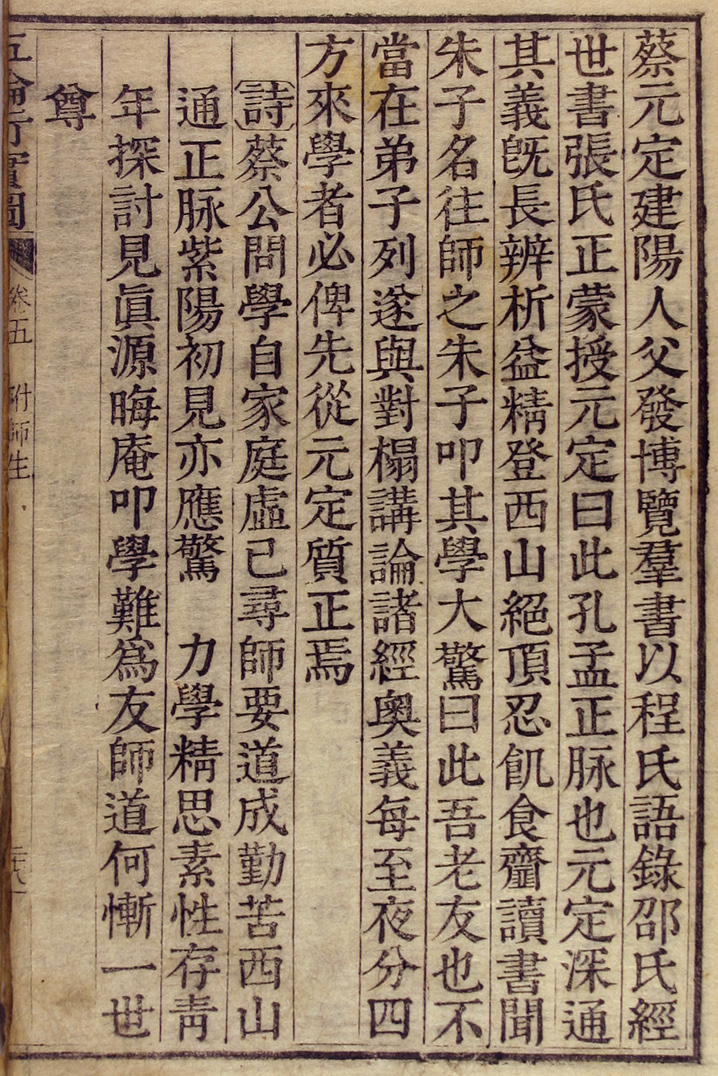 蔡元定建陽人父發博覽羣書以程氏語錄邵氏經
世書張氏正蒙授元定曰此孔孟正脉也元定深通
其義旣長辨析益精登西山絕頂忍飢食齏讀書聞
朱子名往師之朱子叩其學大驚曰此吾老友也不
當在弟子列遂與對榻講論諸經奧義每至夜分四
方來學者必俾先從元定質正焉
詩蔡公問學自家庭虛己尋師要道成勤苦西山
通正脉紫陽初見亦應驚 力學精思素性存靑
年探討見眞源晦庵叩學難爲友師道何慚一世
尊
五倫行實圖 卷五 附師生